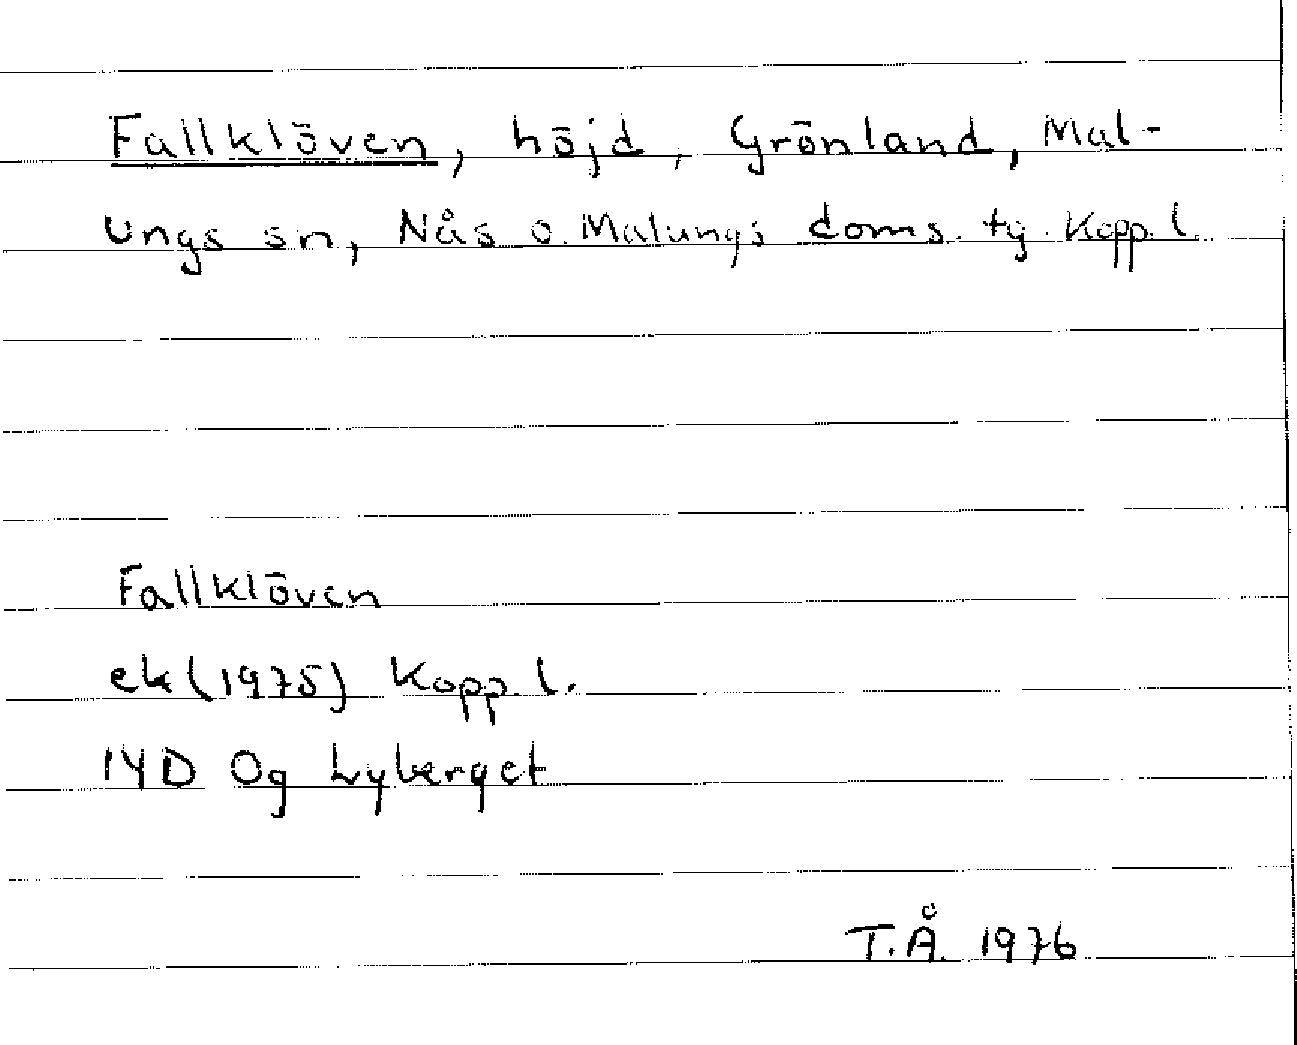 Fallklöven, höjd, Grönland, Mal-
ungs sn, Nås o. Malungs doms. tg. Kopp. l.
Fallklöven
ek (1975) Kopp. l.
14D Og Lyberget
T.Å. 1976